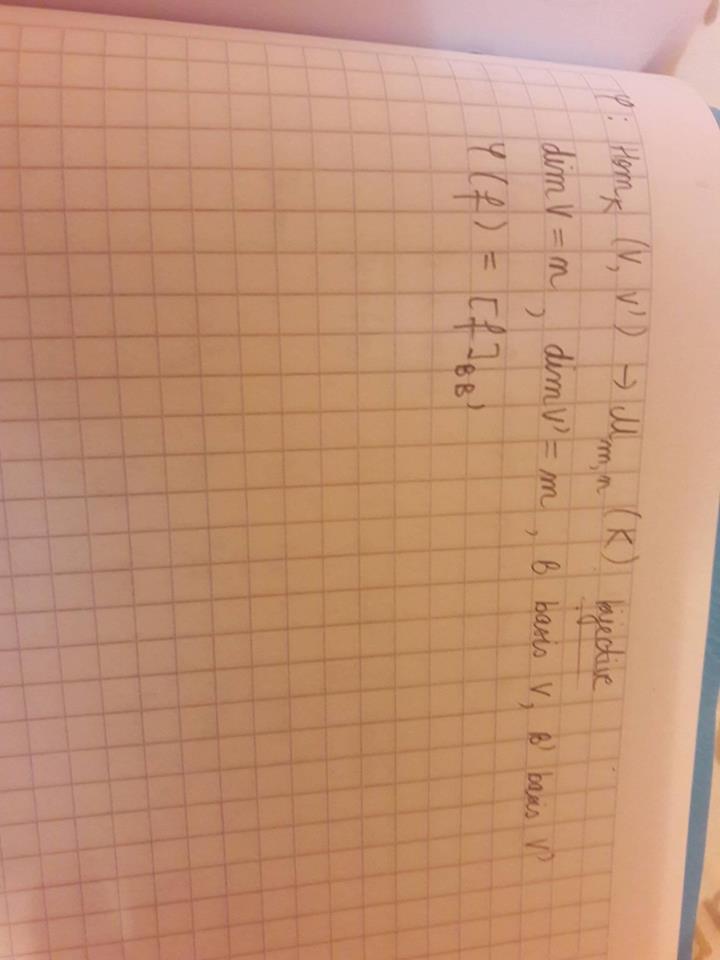 φ: Hom_K (V, V') → M_{m,n} (K) bijective
dim V = n, dim V' = m, B basis V, B' basis V'
φ(f) = [f]_{BB'}